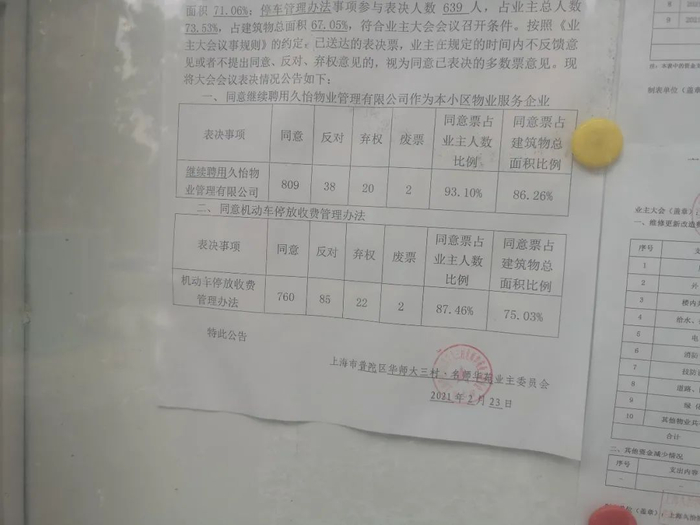 面积 71.06；停车管理办法事项参与表决人数 639 人，占业主总人数
73.53%，占建筑物总面积 67.05%，符合业主大会会议召开条件。按照《业
主大会议事规则》的约定，已送达的表决票，业主在规定的时间内不反馈意
见或者不提出同意、反对、弃权意见的，视为同意已表决的多数票意见。现
将大会会议表决情况公告如下：
一、同意继续聘用久怡物业管理有限公司作为本小区物业服务企业
表决事项 同意 反对 弃权 废票 同意票占业主人数比例 同意票占建筑物总面积比例
继续聘用久怡物业管理有限公司 809 38 20 2 93.10% 86.26%
二、同意机动车停放收费管理办法
表决事项 同意 反对 弃权 废票 同意票占业主人数比例 同意票占建筑物总面积比例
机动车停放收费管理办法 760 85 22 2 87.46% 75.03%
特此公告
上海市普陀区华师大三村·名师华苑业主委员会
2021 年 2 月 23 日
制表单位（盖章
业主大会（盖章）
一、维修更新改造
序号
1
2 外
3 楼内
4 给水、
5 电
6 消防
7
8 道路、
9 绿化
10 其他物业共
合计
二、其他资金减少情况
序号 支出内容